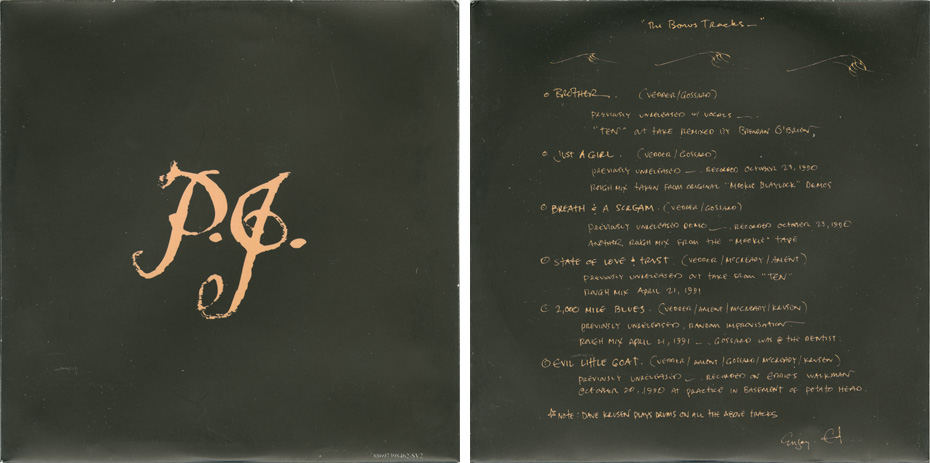 P.J.
"The Bonus Tracks—"
BROTHER. (VEDDER/GOSSARD)
PREVIOUSLY UNRELEASED W/ VOCALS —.
"TEN" OUT TAKE REMIXED BY BRENDAN O'BRIEN,
JUST A GIRL. (VEDDER/GOSSARD)
PREVIOUSLY UNRELEASED —. RECORDED OCTOBER 23, 1990
ROUGH MIX TAKEN FROM ORIGINAL "MOOKIE BLAYLOCK" DEMOS
BREATH & A SCREAM. (VEDDER/GOSSARD)
PREVIOUSLY UNRELEASED DEMO —. RECORDED OCTOBER 23, 1990
ANOTHER ROUGH MIX FROM THE "MOOKIE" TAPE
STATE OF LOVE + TRUST. (VEDDER/MCCREADY/AMENT)
PREVIOUSLY UNRELEASED OUT TAKE FROM "TEN"
ROUGH MIX APRIL 21, 1991
2,000 MILE BLUES. (VEDDER/AMENT/MCCREADY/KRUSEN)
PREVIOUSLY UNRELEASED, RANDOM IMPROVISATION
ROUGH MIX APRIL 21, 1991 —. GOSSARD WAS @ THE DENTIST.
EVIL LITTLE GOAT. (VEDDER/AMENT/GOSSARD/MCCREADY/KRUSEN)
PREVIOUSLY UNRELEASED — RECORDED ON EDDIE'S WALKMAN
OCTOBER 20, 1990 AT PRACTICE IN BASEMENT OF POTATO HEAD.
☆NOTE: DAVE KRUSEN PLAYS DRUMS ON ALL THE ABOVE TRACKS
Enjoy